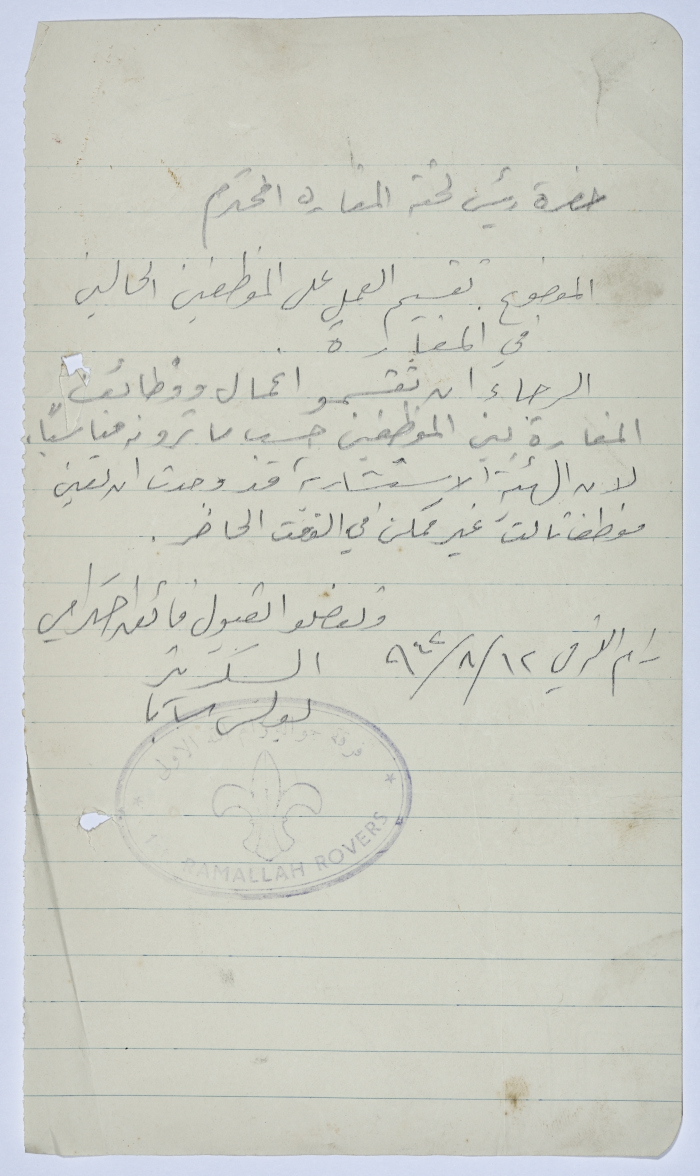 حضرة رئيس لجنة المغارة المحترم
الموضوع. تقسيم العمل على الموظفين الحاليين
في المغارة.
الرجاء ان تقسموا اعمال ووظائف
المغارة بين الموظفين حسب ما ترونه مناسبًا.
لان الهيئة الاستشارية قد وجدت ان تعيين
موظف ثالث غير ممكن في الوقت الحاضر.
وتفضلوا بقبول فائق احترامي
رام الله في ١٢/٨/٩٤٤
السكرتير
بولس سابا
فرقة جوالة رام الله الاولى
RAMALLAH ROVERS